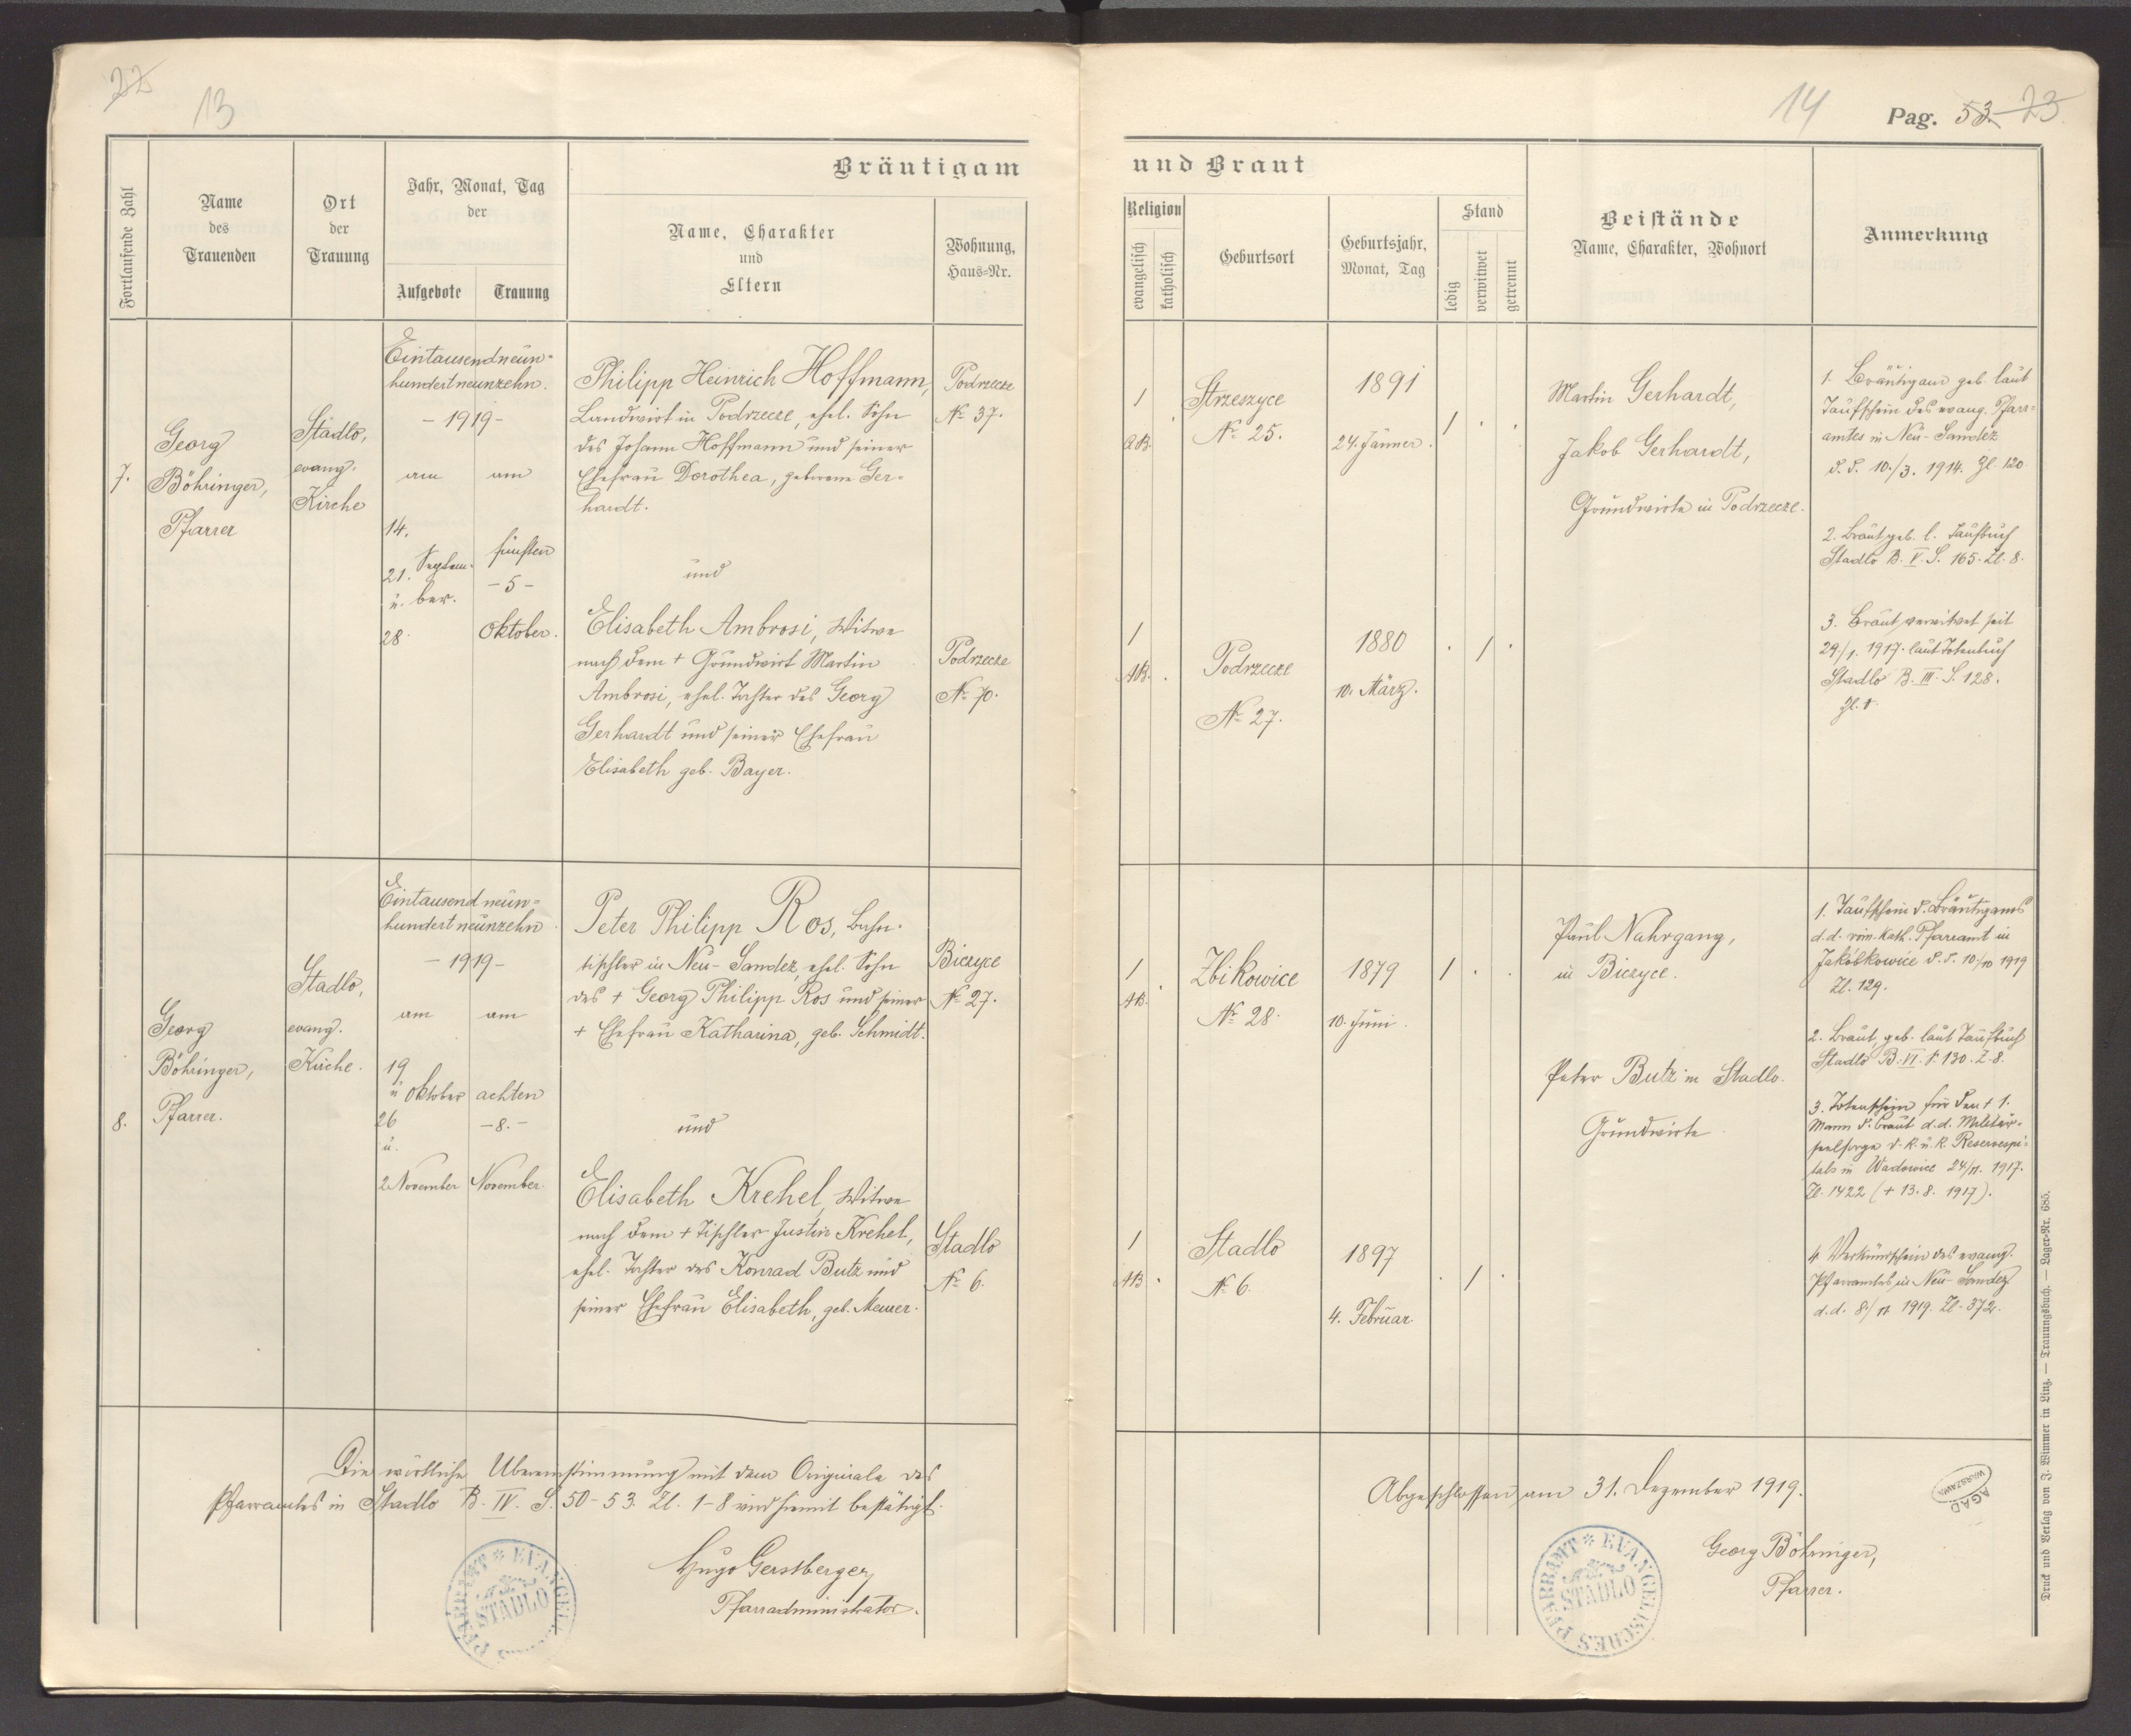 22
13
14
Pag. 53. 23
Bräutigam
und Braut
Fortlaufende Zahl
Name
des
Trauenden
Ort
der
Trauung
Jahr, Monat, Tag
der
Aufgebote
Trauung
Name, Charakter
und
Eltern
Wohnung,
Haus=Nr.
Religion
evangelisch
katholisch
Geburtsort
Geburtsjahr,
Monat, Tag
Stand
ledig
verwitwet
getrennt
Beistände
Name, Charakter, Wohnort
Anmerkung
7.
Georg
Böhringer,
Pfarrer
Stadlo,
evang.
Kirche
Eintausendneun=
hundertneunzehn.
- 1919 -
am
am
14.
21. Septem-
u. ber.
28.
fünften
- 5 -
Oktober.
Philipp Heinrich Hoffmann,
Landwirt in Podrzecze, ehel. Sohn
des Johann Hoffmann und seiner
Ehefrau Dorothea, geborene Ger=
hardt.
und
Elisabeth Ambrosi, Witwe
nach dem + Grundwirt Martin
Ambrosi, ehel. Tochter des Georg
Gerhardt und seiner Ehefrau
Elisabeth geb. Bayer.
Podrzecze
No 37.
Podrzecze
No 70.
1
A.B.
Strzeszyce
No 25.
1891
24. Jänner.
1
1
A.B.
Podrzecze
No 27.
1880
10. März.
1
Martin Gerhardt,
Jakob Gerhardt,
Grundwirte in Podrzecze.
1. Bräutigam geb. laut
Taufschein des evang. Pfarr=
amtes in Neu-Sandez
d. d. 10./3. 1914. Zl. 120
2. Braut geb. l. Taufbuch
Stadlo B. V. S. 165. Zl. 8.
3. Braut verwitwet seit
29/1. 1917. laut Totenbuch
Stadlo B. III. S. 128.
Zl. 1.
8.
Georg
Böhringer,
Pfarrer.
Stadlo,
evang.
Kirche.
Eintausend neun=
hundert neunzehn.
- 1919 -
am
am
19
u Oktober
26
u.
2 November
achten
- 8. -
November.
Peter Philipp Ros, Bahn-
tischler in Neu-Sandez, ehel. Sohn
des + Georg Philipp Ros und seiner
+ Ehefrau Katharina, geb. Schmidt.
und
Elisabeth Krehel, Witwe
nach dem + Tischler Justin Krehel,
ehel. Tochter des Konrad Butz und
seiner Ehefrau Elisabeth, geb. Meurer.
Biczyce
No 27.
Stadlo
No 6.
1
A.B.
Zbikowice
No 28.
1879
10. Juni.
1
1
A.B.
Stadlo
No 6.
1897
4. Februar.
1
Paul Nahrgang,
in Biczyce.
Peter Butz in Stadlo.
Grundwirte
1. Taufschein d. Bräutigams
d. d. röm. kath. Pfarramt in
Jakobkowice d. d. 10./10 1919
Zl. 129.
2. Braut, geb. laut Taufbuch
Stadlo B. VI. S. 130. Z. 8.
3. Totenschein für den + 1.
Mann d. Braut d. d. Militär-
seelsorge d. k. u. k. Reservespi=
tals in Wadowice 24/11. 1917.
Zl. 1422 (+ 13. 8. 1917).
4. Verkündschein des evang.
Pfarramtes in Neu-Sandez
d. d. 8./11. 1919. Zl. 372.
Die wörtliche Übereinstimmung mit dem Originale des
Pfarramtes in Stadlo B. IV. S. 50-53. Zl. 1-8 wird hiermit bestätigt.
Hugo Gerstberger,
Pfarradministrator.
EVANGEL. PFARRAMT
STADLO
Abgeschlossen am 31. Dezember 1919.
Georg Böhringer,
Pfarrer.
EVANGELISCHES PFARRAMT
STADLO
AGAD
WARSZAWA
Druck und Verlag von J. Wimmer in Linz. — Trauungsbuch. — Lager-Nr. 685.